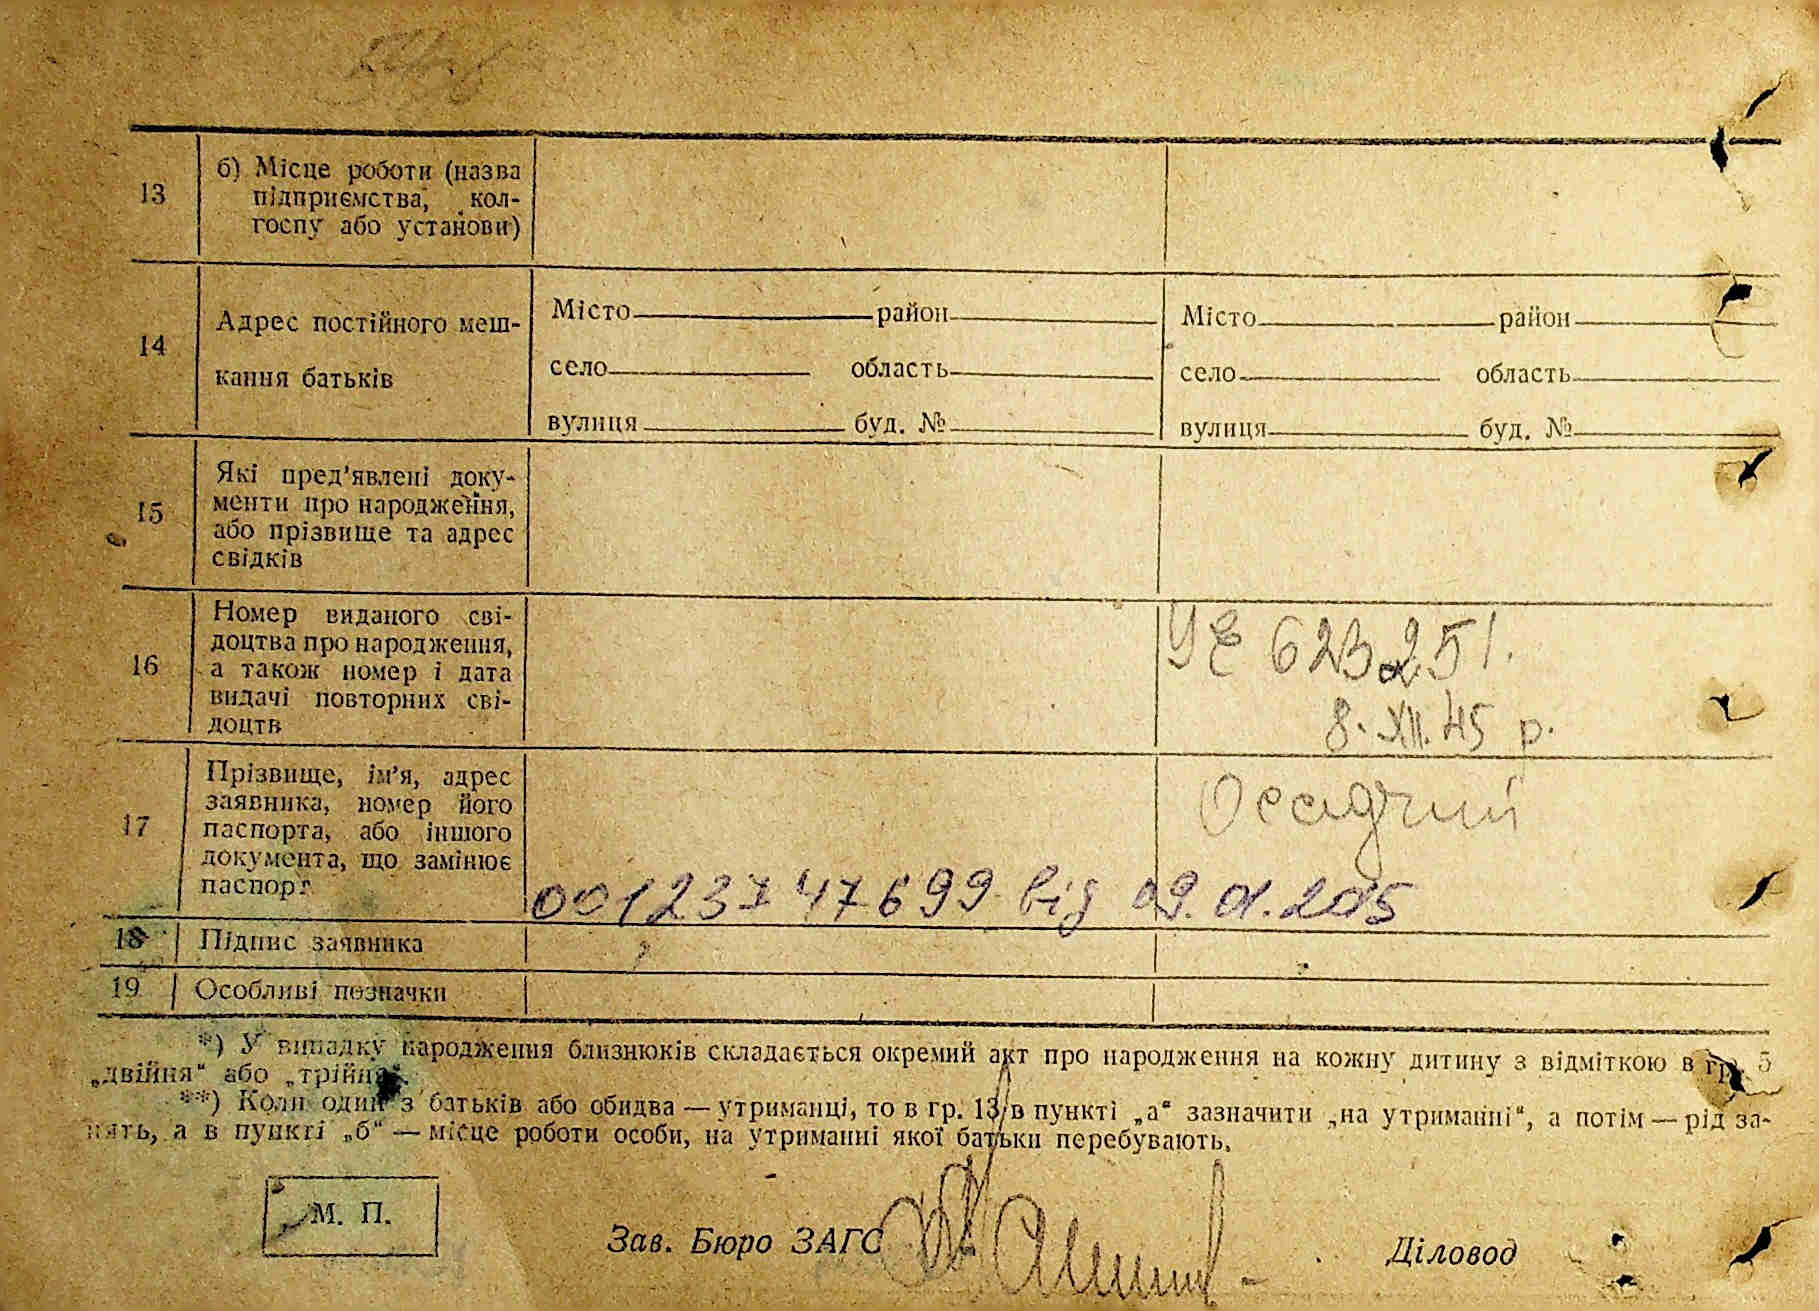 13
б) Місце роботи (назва
підприємства, кол-
госпу або установи)
14
Адрес постійного меш-
кання батьків
Місто район
село область
вулиця буд. №
Місто район
село область
вулиця буд. №
15
Які пред'явлені доку-
менти про народження,
або прізвище та адрес
свідків
16
Номер виданого сві-
доцтва про народження,
а також номер і дата
видачі повторних сві-
доцтв
УЕ 623251.
8. XII. 45 р.
17
Прізвище, ім'я, адрес
заявника, номер його
паспорта, або іншого
документа, що замінює
паспорт
Осадчий
00123747699 від 09.01.2015
18 Підпис заявника
19 Особливі позначки
*) У випадку народження близнюків складається окремий акт про народження на кожну дитину з відміткою в гр. 5
„двійня“ або „трійня“.
**) Коли один з батьків або обидва — утриманці, то в гр. 13 в пункті „а“ зазначити „на утриманні“, а потім — рід за-
нять, а в пункті „б“ — місце роботи особи, на утриманні якої батьки перебувають.
М. П.
Зав. Бюро ЗАГС
Діловод